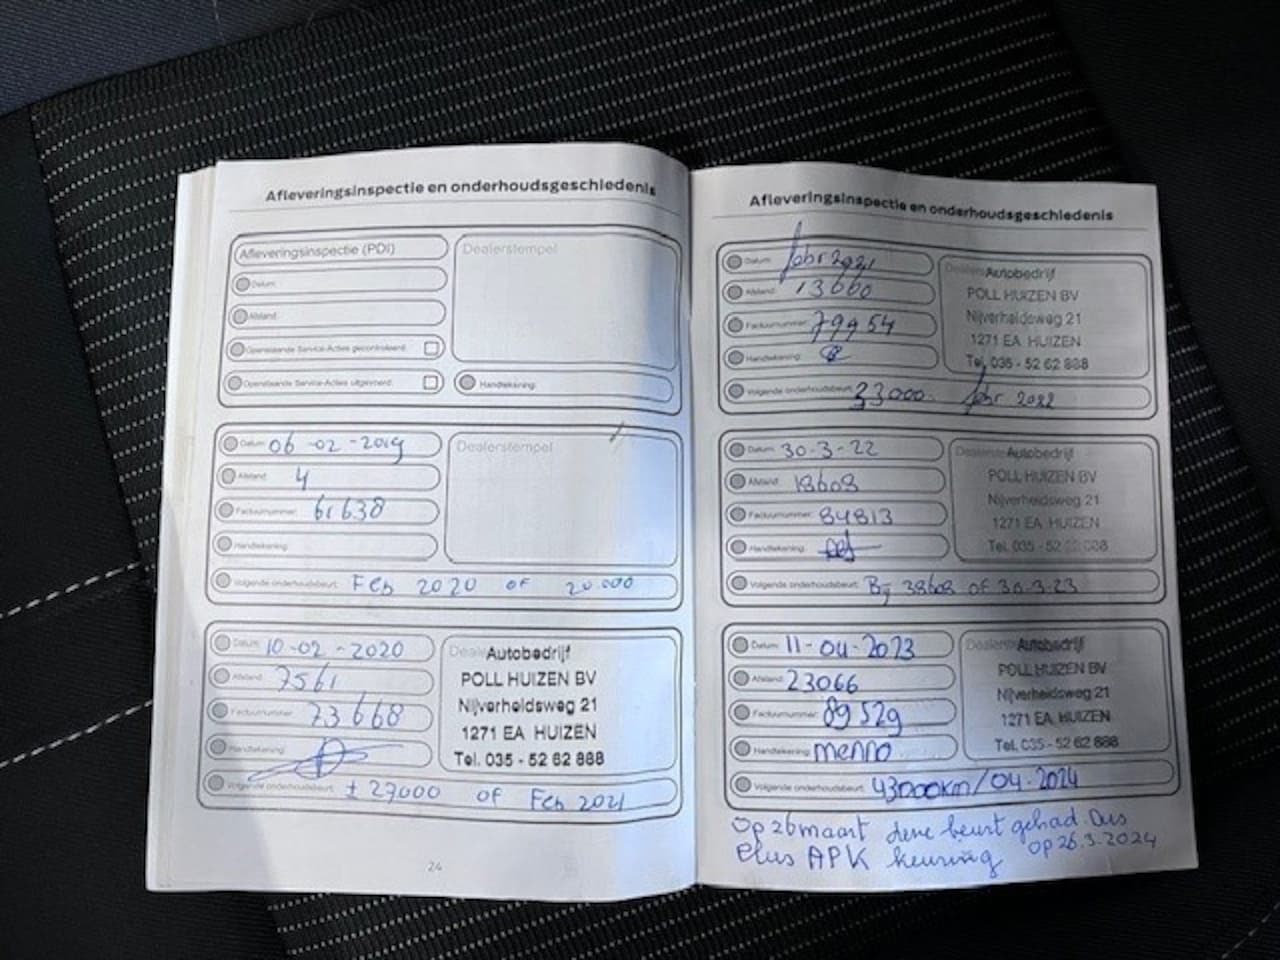 Afleveringsinspectie en onderhoudsgeschiedenis
Afleveringsinspectie (PDI)
Datum:
Afstand:
Openstaande Service-Acties gecontroleerd:
Openstaande Service-Acties uitgevoerd:
Dealerstempel
Handtekening:
Datum: 06-02-2019
Afstand: 4
Factuurnummer: 61638
Handtekening:
Volgende onderhoudsbeurt: Feb 2020 of 20.000
Dealerstempel
Datum: 10-02-2020
Afstand: 7561
Factuurnummer: 73668
Handtekening:
Volgende onderhoudsbeurt: ± 27000 of Feb 2021
Autobedrijf
POLL HUIZEN BV
Nijverheidsweg 21
1271 EA HUIZEN
Tel. 035 - 52 62 888
24
Afleveringsinspectie en onderhoudsgeschiedenis
Datum: febr 2021
Afstand: 13000
Factuurnummer: 79954
Handtekening:
Volgende onderhoudsbeurt: 33000. febr 2022
Autobedrijf
POLL HUIZEN BV
Nijverheidsweg 21
1271 EA HUIZEN
Tel. 035 - 52 62 888
Datum: 30-3-22
Afstand: 18608
Factuurnummer: 84813
Handtekening:
Volgende onderhoudsbeurt: Bij 38608 of 30-3-23
Autobedrijf
POLL HUIZEN BV
Nijverheidsweg 21
1271 EA HUIZEN
Tel. 035 - 52 62 888
Datum: 11-04-2023
Afstand: 23066
Factuurnummer: 89529
Handtekening: menno
Volgende onderhoudsbeurt: 43000km/04-2024
Autobedrijf
POLL HUIZEN BV
Nijverheidsweg 21
1271 EA HUIZEN
Tel. 035 - 52 62 888
Op 26 maart deze beurt gehad. Dus
Plus APK keuring op 26.3.2024